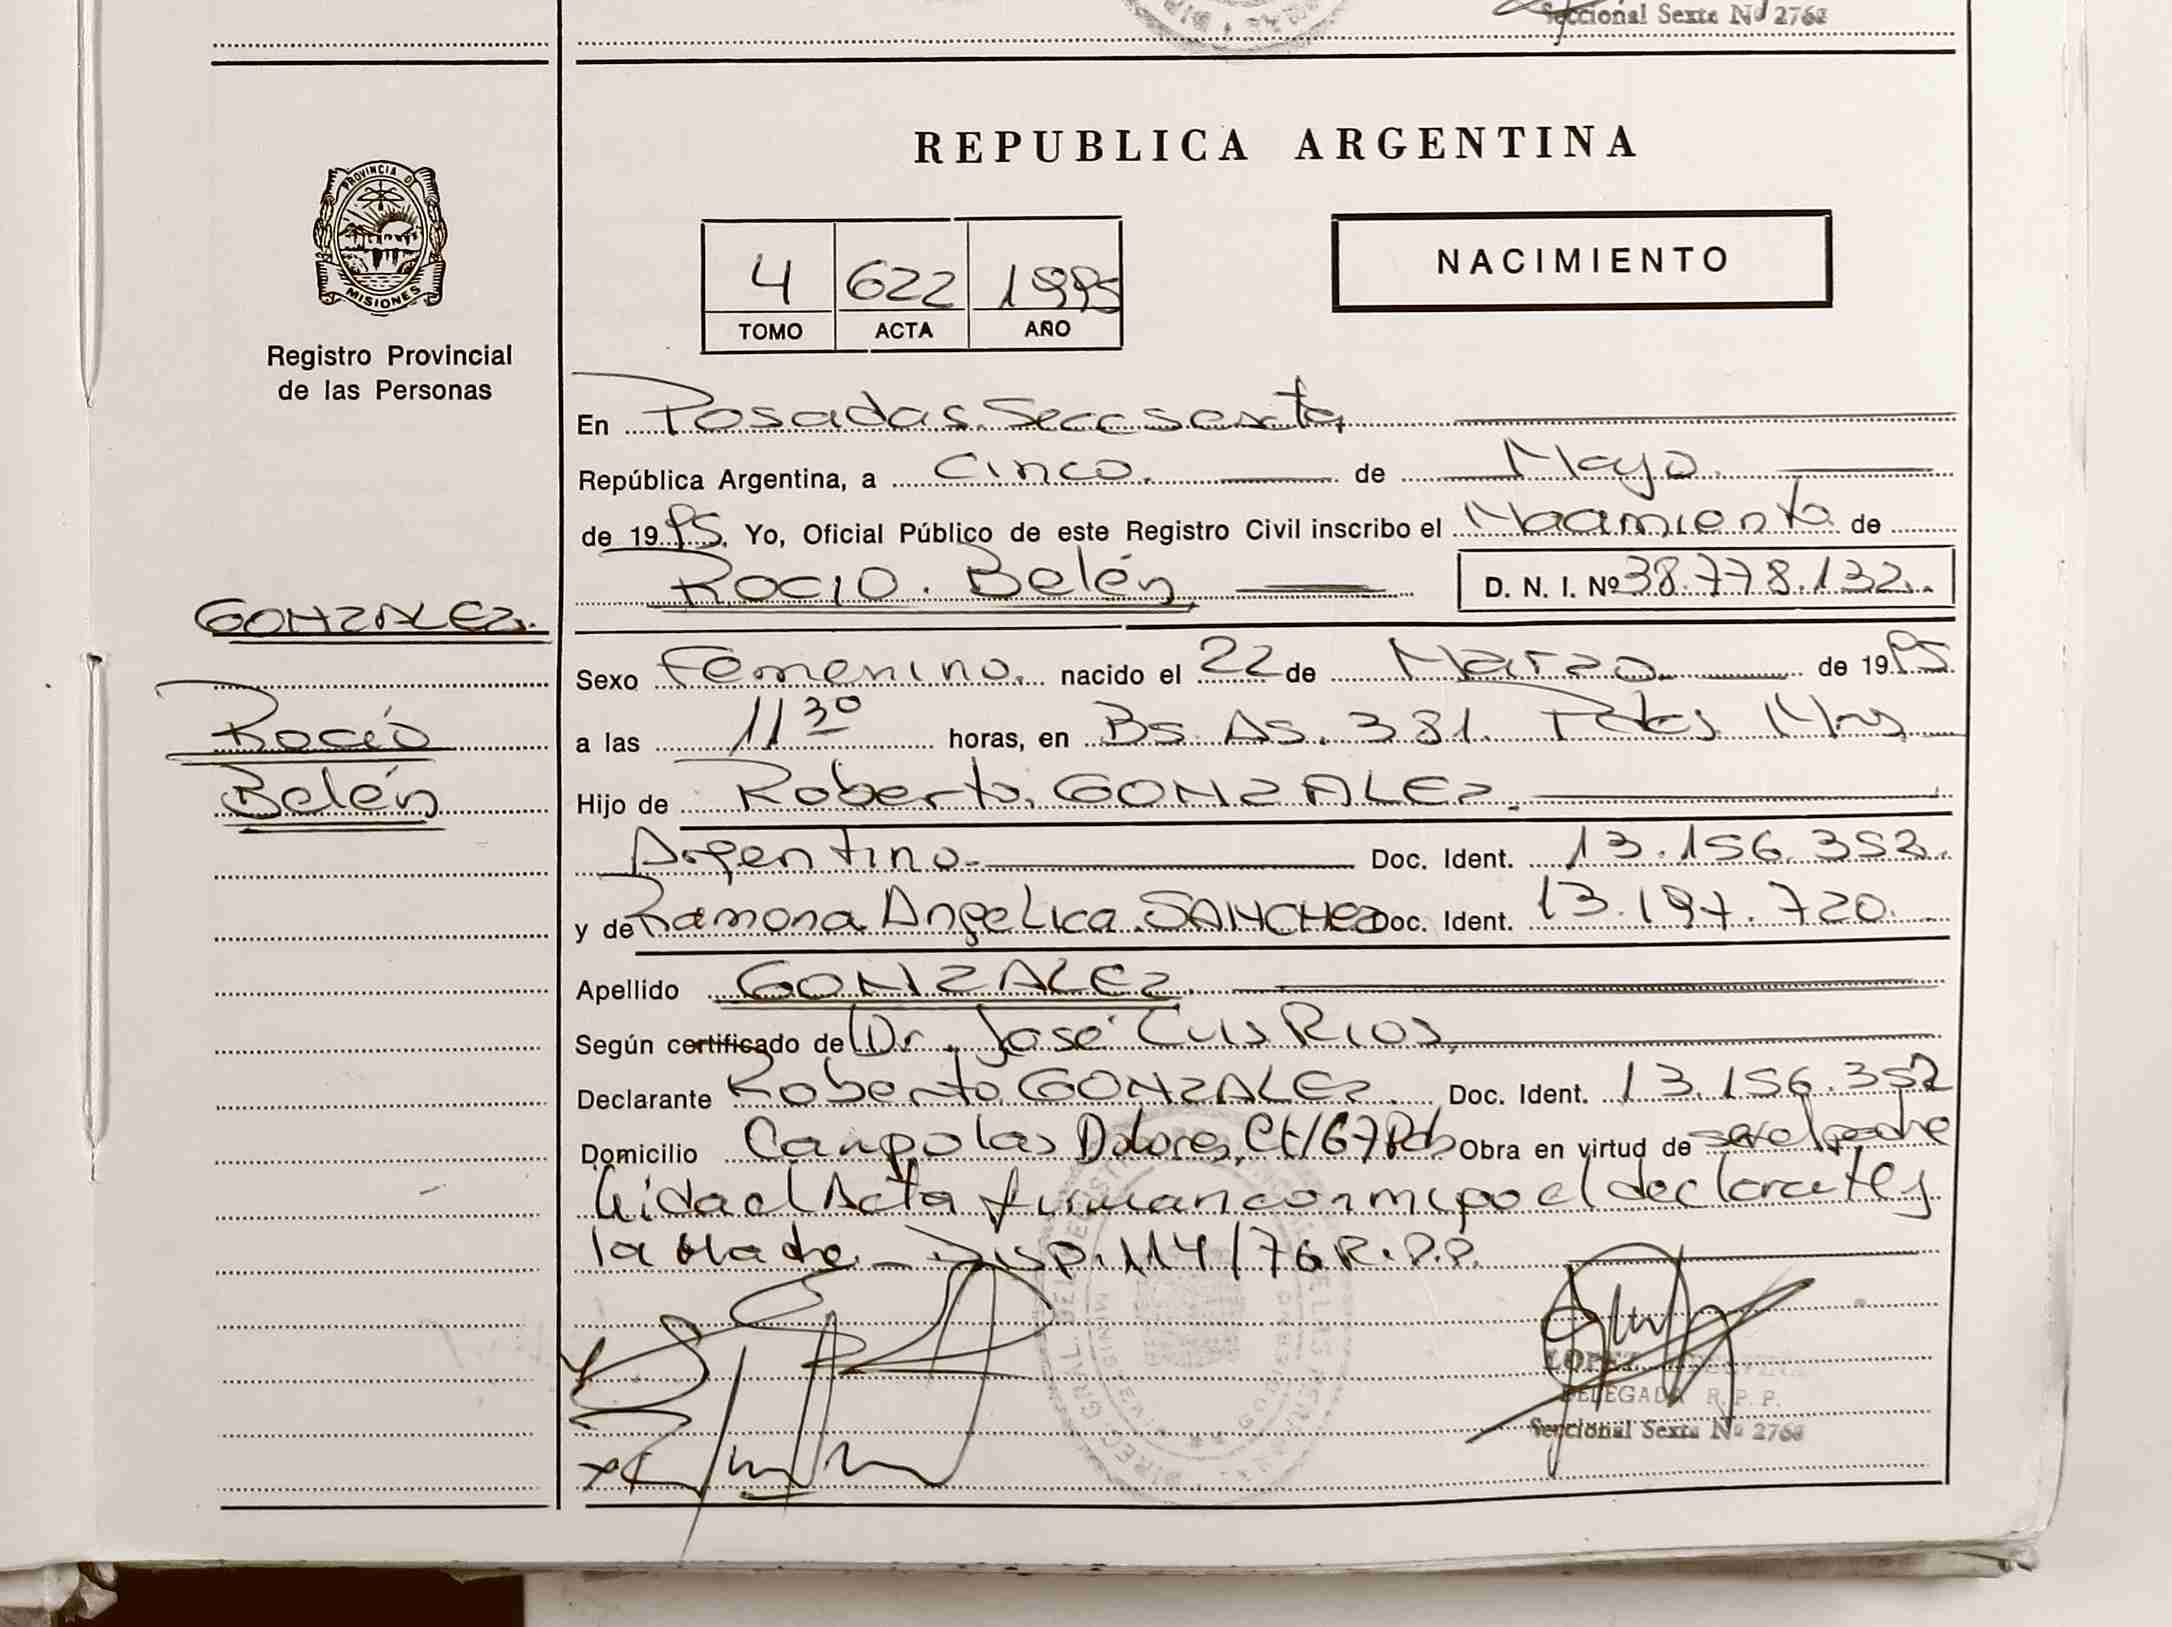 Seccional Sexta Nº 2768
REPUBLICA ARGENTINA
PROVINCIA D
MISIONES
Registro Provincial
de las Personas
4 622 1995
TOMO ACTA AÑO
NACIMIENTO
En Posadas Secc sexta
República Argentina, a Cinco de Mayo
de 1995. Yo, Oficial Público de este Registro Civil inscribo el Nacimiento de
Rocio Belén D. N. I. Nº 38.778.132
GONZALEZ
Rocío
Belén
Sexo Femenino nacido el 22 de Marzo de 1995
a las 11 30 horas, en Bs. As. 381. Pdas Mnes
Hijo de Roberto GONZALEZ
Argentino Doc. Ident. 13.156.352
y de Ramona Angelica SANCHEZ Doc. Ident. 13.197.720
Apellido GONZALEZ
Según certificado de Dr. José Luis Rios
Declarante Roberto GONZALEZ Doc. Ident. 13.156.352
Domicilio Dolores, Obra en virtud de ser el padre
Leida el Acta firman conmigo el declarante y
la Madre - Disp. 114/76 R.P.P.
LOPEZ
DELEGADA R. P. P.
Seccional Sexta Nº 2768